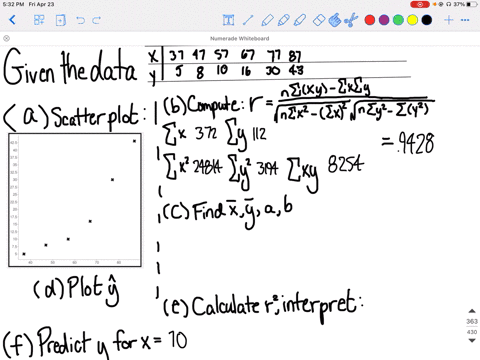 5:32 PM Fri Apr 23
37%
Numerade Whiteboard
Given the data
x 37 47 57 67 77 87
y 5 8 10 16 30 43
(a) Scatterplot:
(b) Compute: r = nΣ(xy) - ΣxΣy / √nΣx² - (Σx)² √nΣy² - Σ(y²)
= .9428
Σx 372 Σy 112
Σx² 24814 Σy² 3194 Σxy 8254
(c) Find x̄, ȳ, a, b
(d) Plot ŷ
(e) Calculate r², interpret:
(f) Predict y for x = 70
363
430